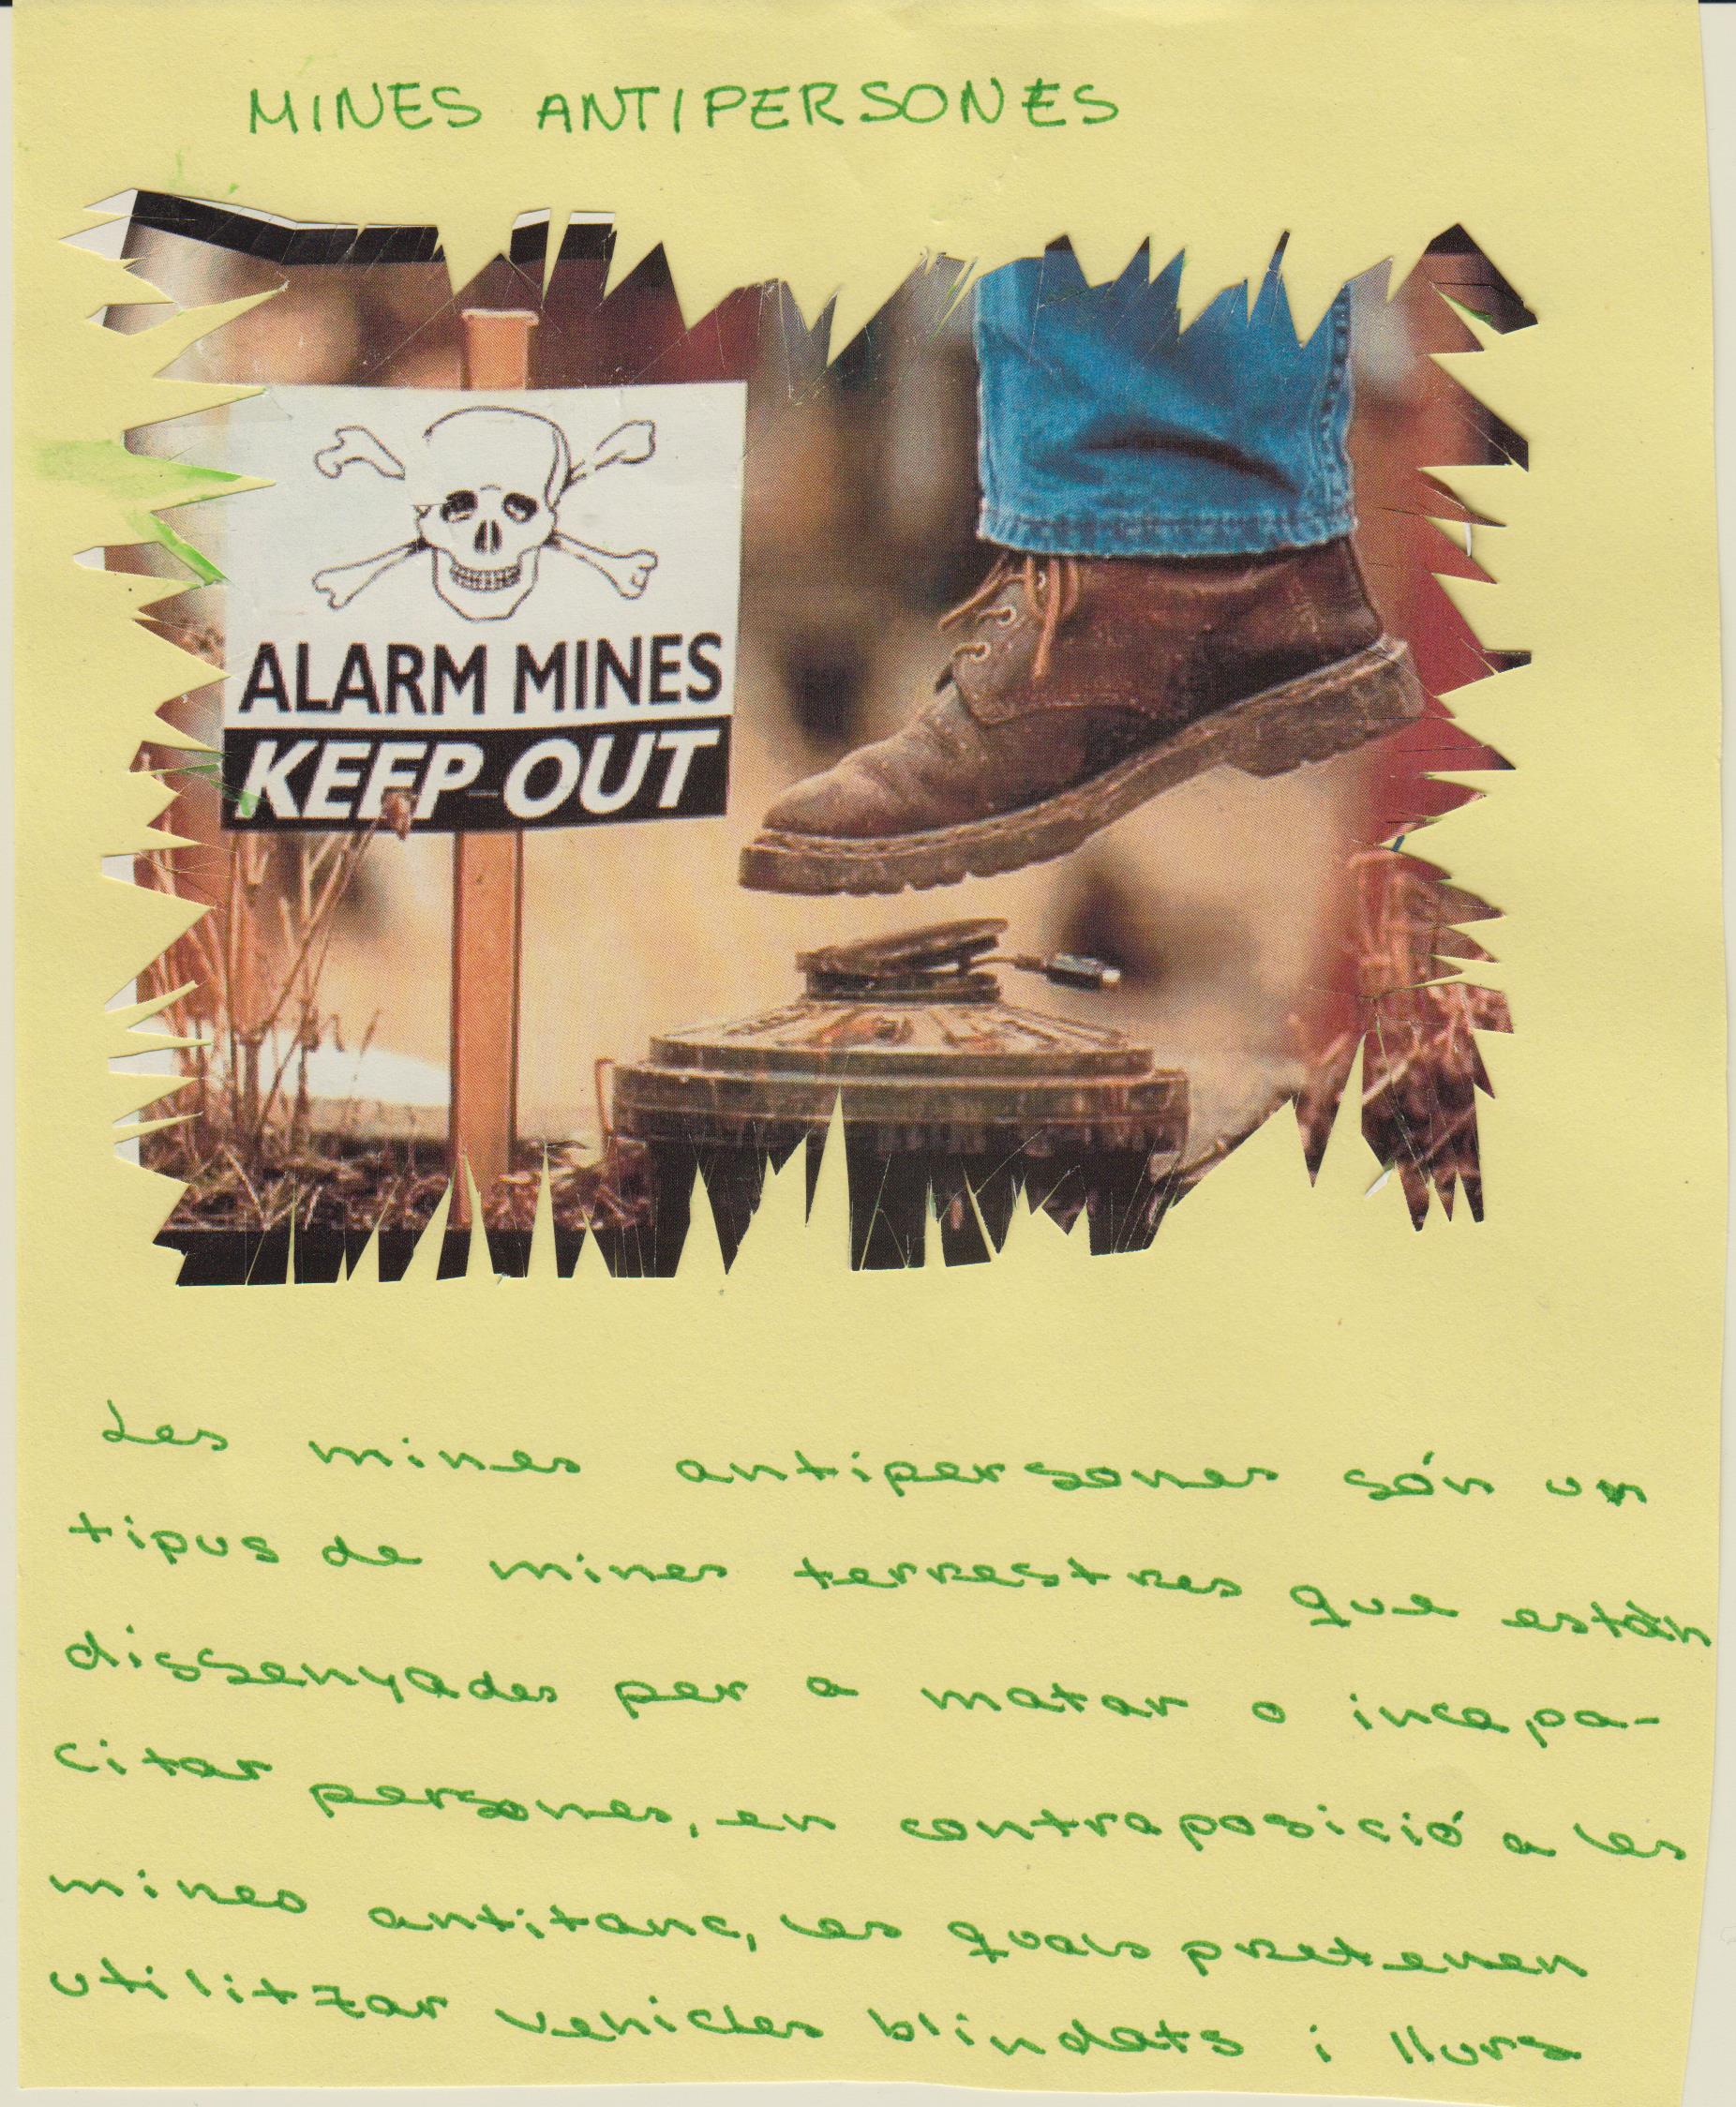 MINES ANTIPERSONES
ALARM MINES
KEEP OUT
Les mines antipersones són un
tipus de mines terrestres que estàn
dissenyades per a matar o incapa-
citar persones, en contraposició a les
mines antitanc, les quals pretenen
utilitzar vehicles blindats i llurs